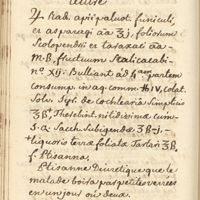 ♃ Rad. apii palust. funiculi,
et asparagi aa ℥j. foliorum
Scolopendrii et taraxaci aa-
M·B, fructuum
nº XII. Bulliant ad 4am partem
consump. in aq comm. ℔IV, colat.
Solv. Syr. de cochlearia simplicis
℥B
s.a. Sacch. Subigendæ ʒB-j.-
liquoris terræ foliatæ Tartari ʒB,
f. Ptisanna.
Ptisanne Diuretique que le
malade boira par petites verrees
en un jour ou deux.